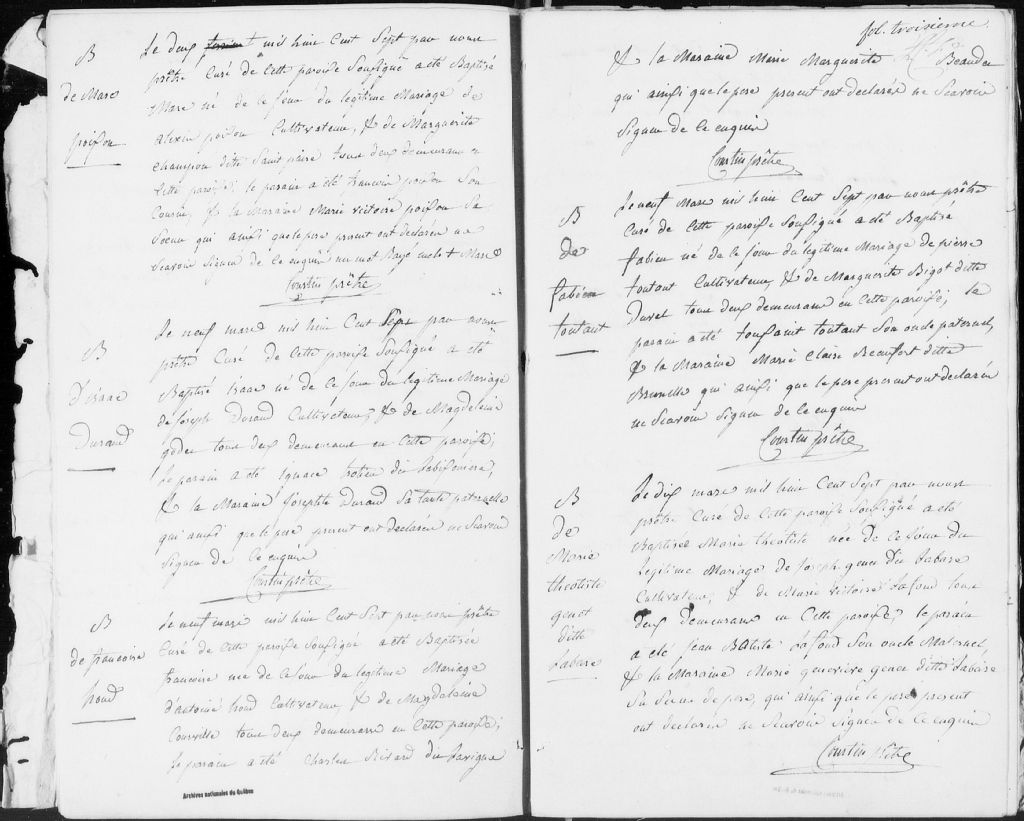 B
de Marc
poisson
Le deux mil huit Cent Sept par nous
prêtre Curé de Cette paroisse Soussigné a été Baptisé
Marc né de ce jour du legitime Mariage de
alexis poisson Cultivateur, & de Marguerite
champou ditte Saint paire tous deux demeurans en
Cette paroisse; le parain a été francois poisson Son
Cousin, & la Maraine Marie victoire poisson Sa
Soeur qui ainsi que le pere present ont declarés ne
Scavoir Signer de ce enquis un mot Rayé nul + Mars
Courtin prêtre
B
D'isaac
Durand
Le neuf mars mil huit Cent Sept par nous
prêtre Curé de Cette paroisse Soussigné a été
Baptisé isaac né de ce jour du legitime Mariage
de joseph Durand Cultivateur, & de Magdeleine
godin tous deux demeurans en Cette paroisse;
le parain a été ignace trotier dit
& la Maraine josephte Durand Sa tante paternelle
qui ainsi que le pere present ont declarés ne Scavoir
Signer de Ce enquis
Courtin prêtre
B
de francoise
houd
Le neuf mars mil huit Cent Sept par nous prêtre
Curé de Cette paroisse Soussigné a été Baptisée
francoise née de ce jour du legitime Mariage
d'antoine houd Cultivateur, & de Magdelaine
Courville tous deux demeurans en Cette paroisse;
le parain a été Charles Rivard dit Lavigne
Archives nationales du Québec
fol. troisieme
& la Maraine Marie Marguerite Beaudin
qui ainsi que le pere present ont declarés ne Scavoir
Signer de Ce enquis
Courtin prêtre
B
de
fabien
toutant
Le neuf Mars mil huit Cent Sept par nous prêtre
Curé de Cette paroisse Soussigné a été Baptisé
fabien né de ce jour du legitime Mariage de pierre
toutant Cultivateur, & de Marguerite Bigot ditte
Duval tous deux demeurans en Cette paroisse; le
parain a été toussaint toutant Son oncle paternel,
& la Maraine Marie Claire Beaufort ditte
Brunelle qui ainsi que le pere present ont declarés
ne Scavoir Signer de ce enquis
Courtin prêtre
B
de
Marie
theotiste
genet
ditte
Labare
Le dix mars mil huit Cent Sept par nous
prêtre Curé de Cette paroisse Soussigné a été
Baptisée Marie theotiste née de ce jour du
Legitime Mariage de joseph dit Labare
Cultivateur, & de Marie victoire Lafond tous
deux demeurans en Cette paroisse; le parain
a été jean Batiste Lafond Son oncle Maternel,
& la Maraine Marie genevieve ditte Labare
Sa Soeur de pere, qui ainsi que le pere present
ont declarés ne Scavoir Signer de Ce enquis
Courtin prêtre